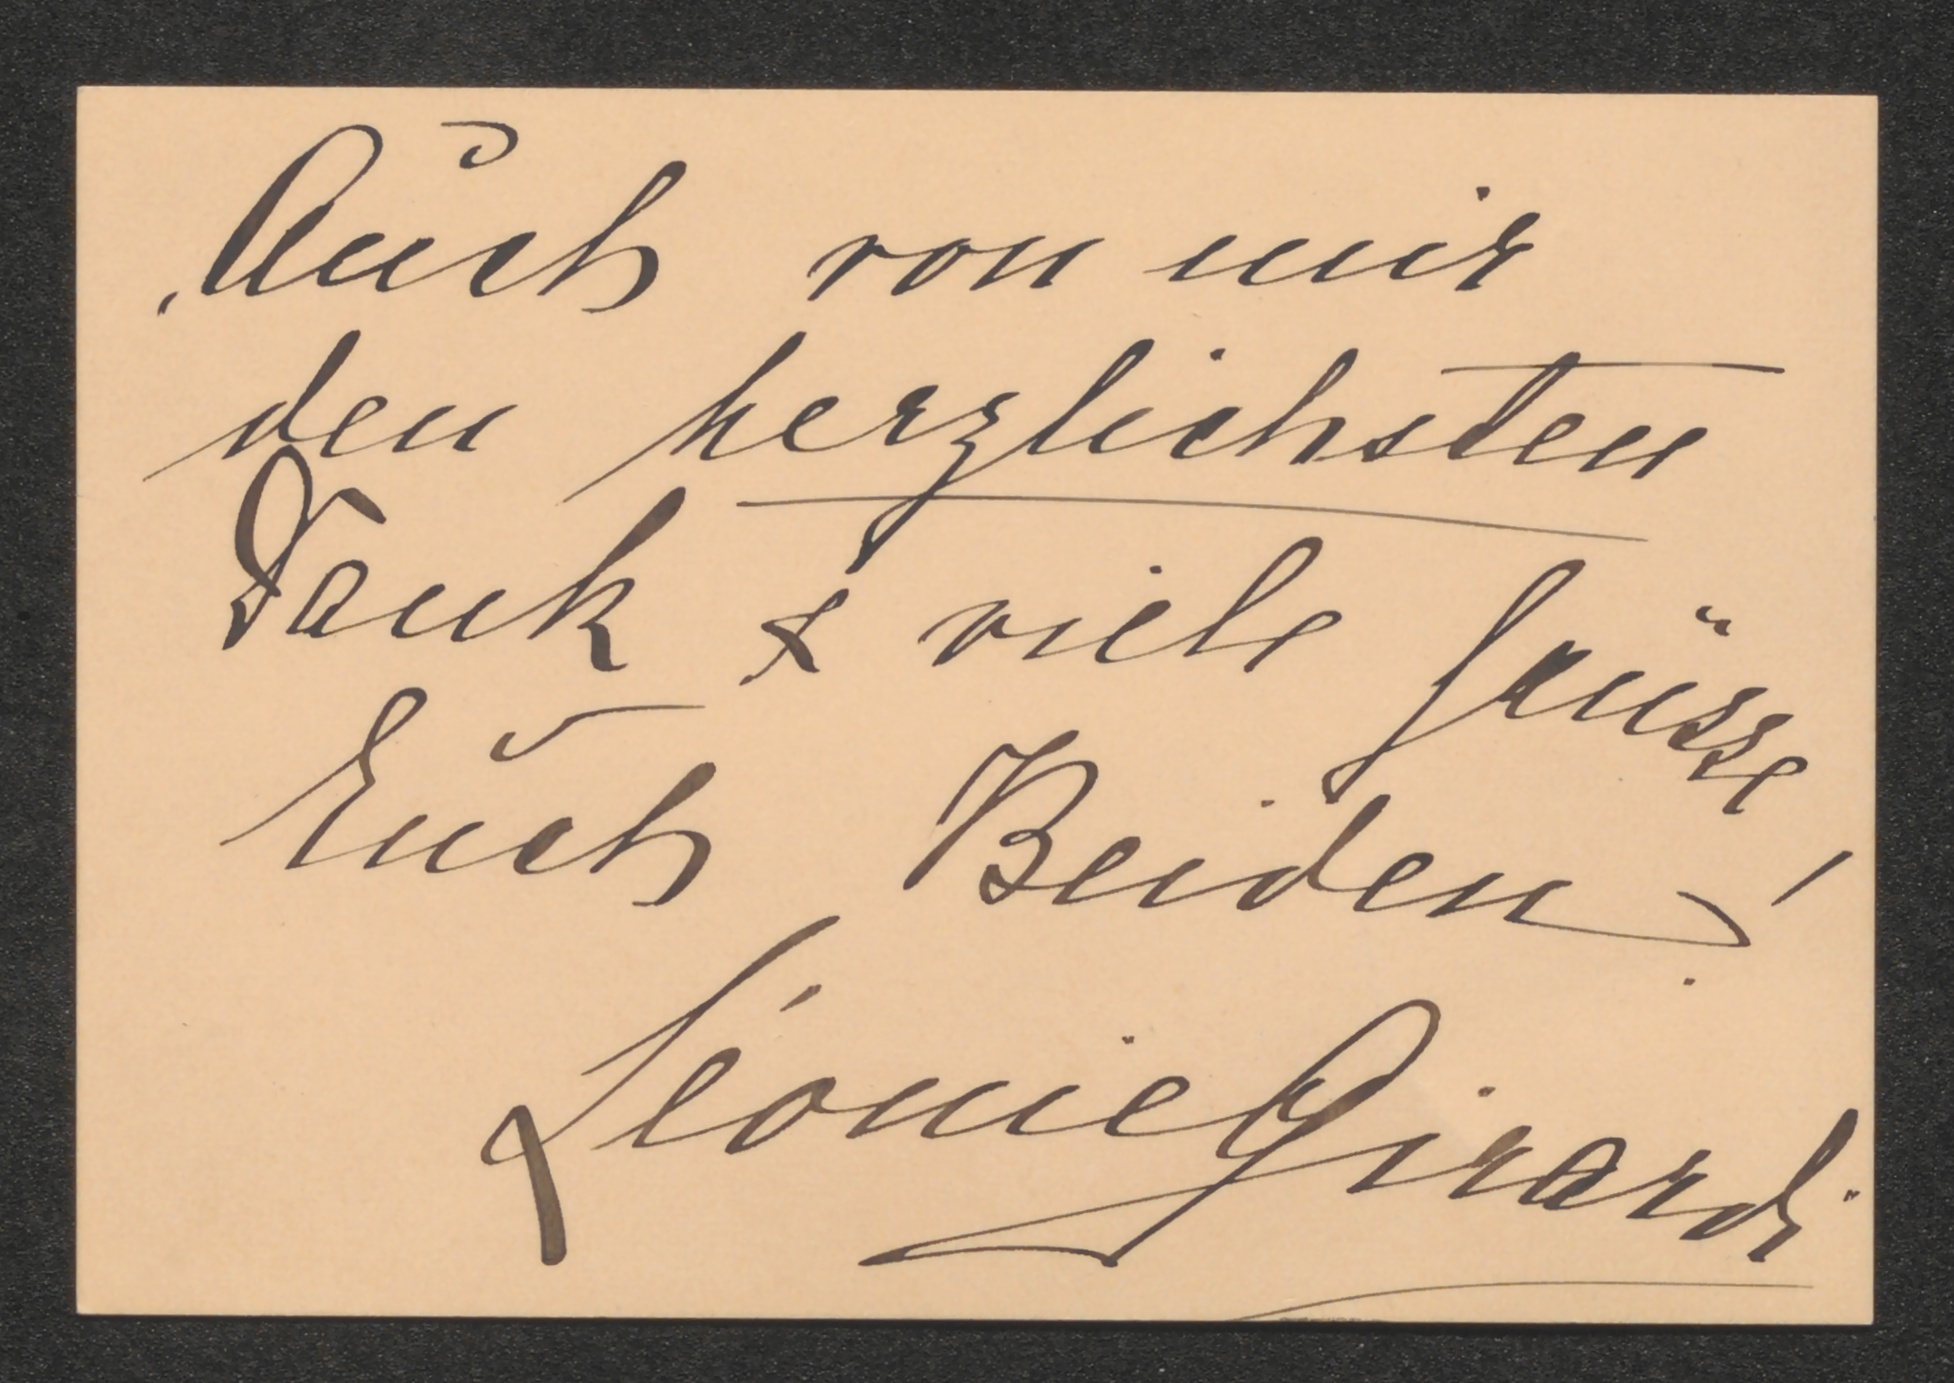 Auch von mir
den herzlichsten
Dank & viele Grüsse
Euch Beiden!
Léonie Girardi